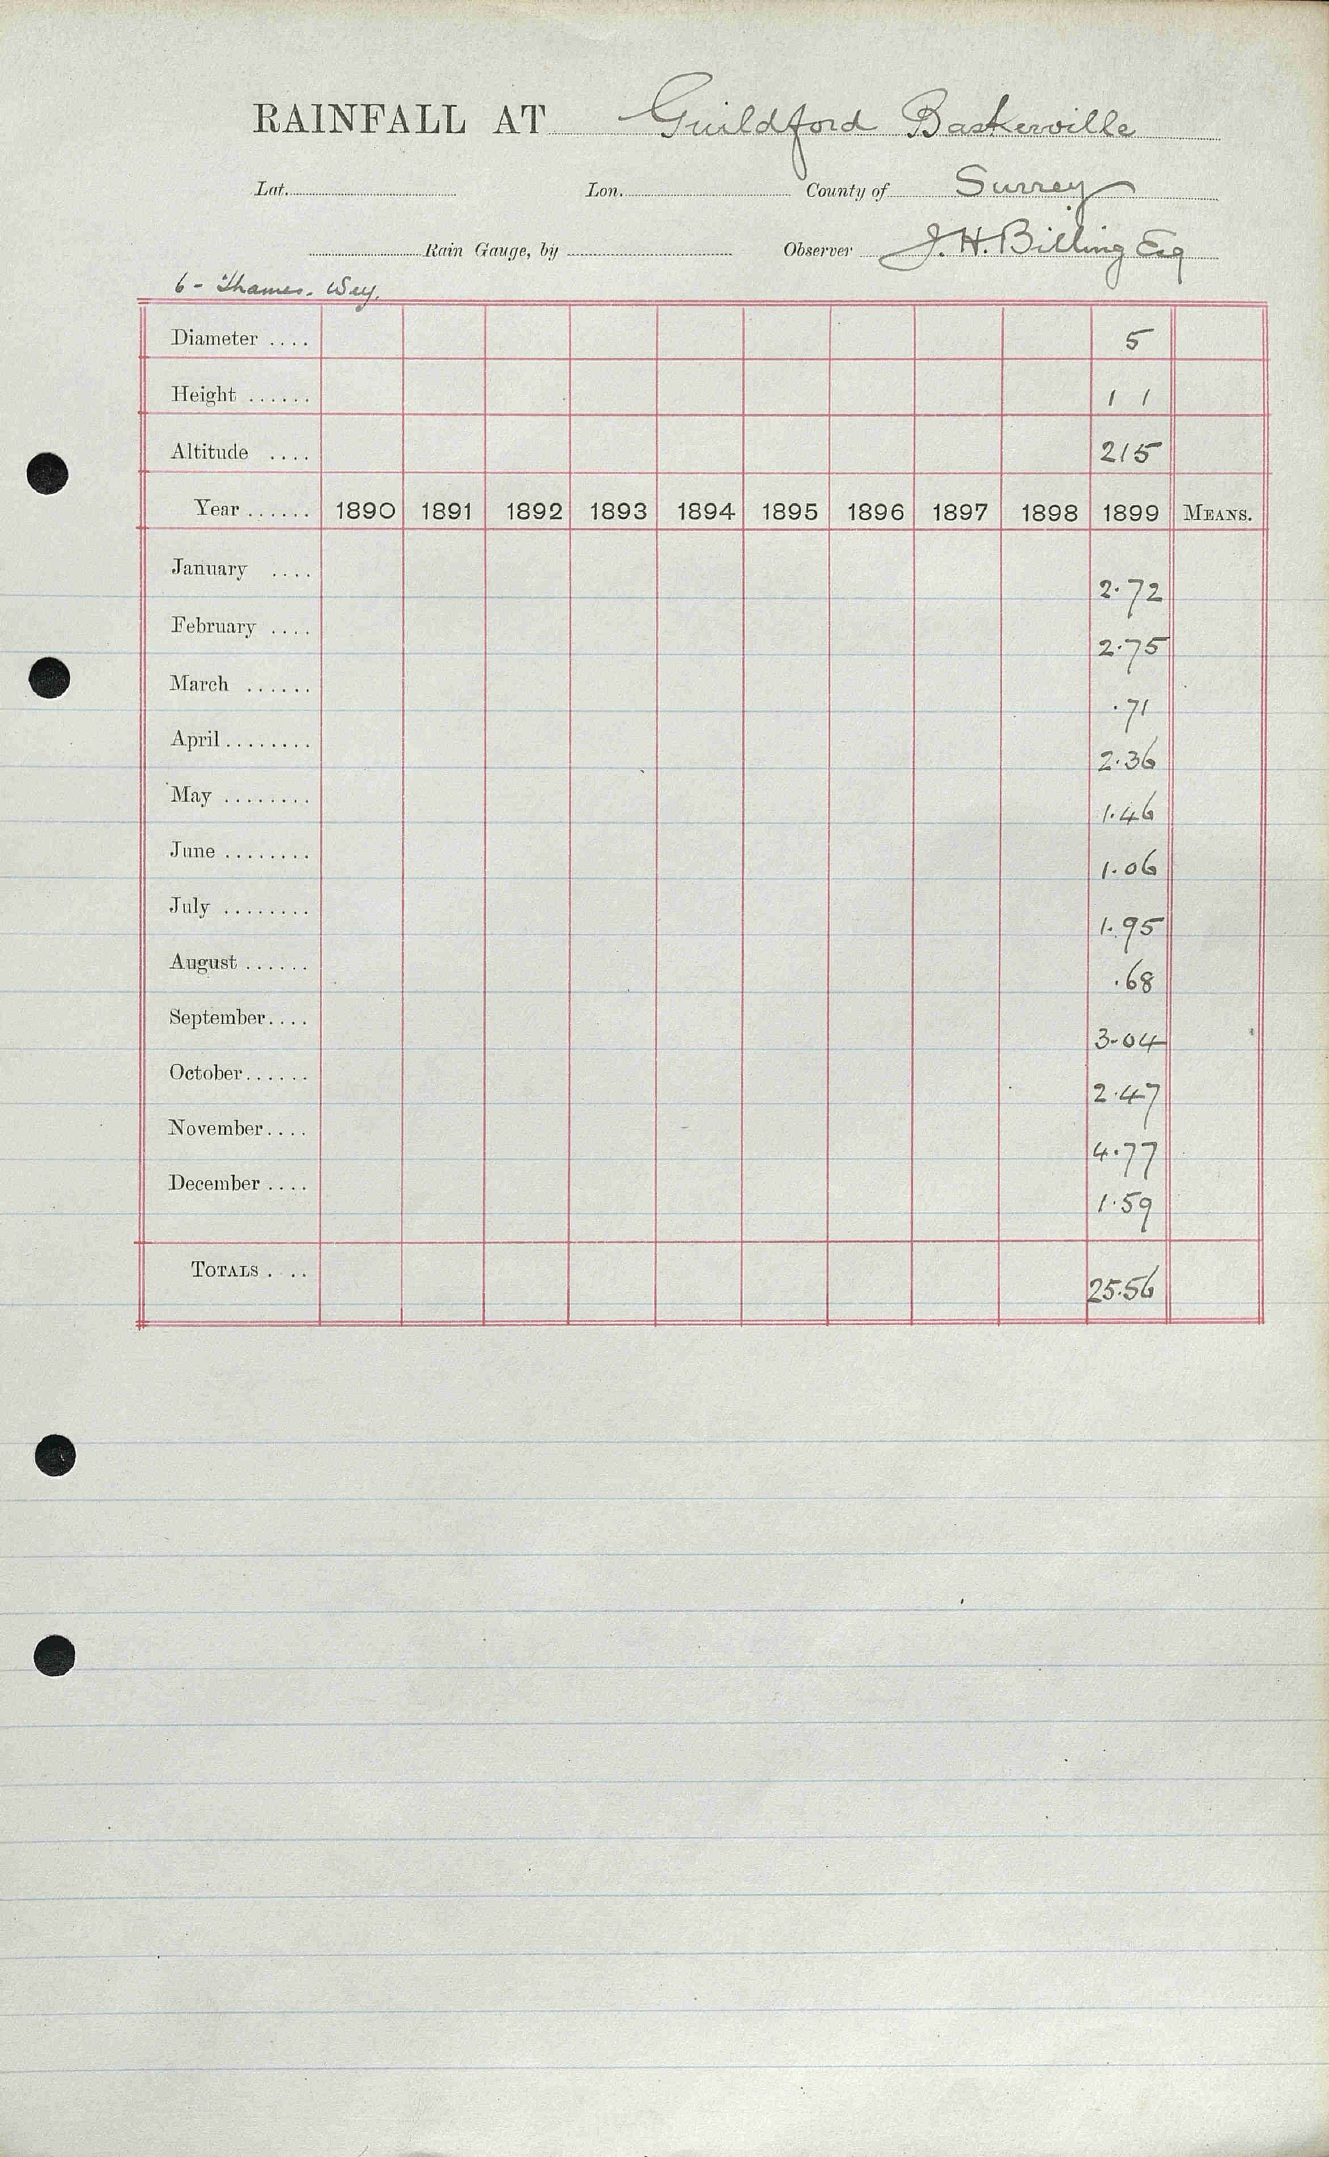 RAINFALL AT Guildford Baskerville
Lat. Lon. County of Surrey
Rain Gauge, by Observer J. H. Billing Esq
6 - Thames. Wey.
Diameter .... 5
Height ...... 1 1
Altitude .... 215
Year ...... 1890 1891 1892 1893 1894 1895 1896 1897 1898 1899 MEANS.
January .... 2.72
February .... 2.75
March ...... .71
April ........ 2.36
May ........ 1.46
June ........ 1.06
July ........ 1.95
August ...... .68
September.... 3.04
October...... 2.47
November.... 4.77
December .... 1.59
TOTALS . .. 25.56